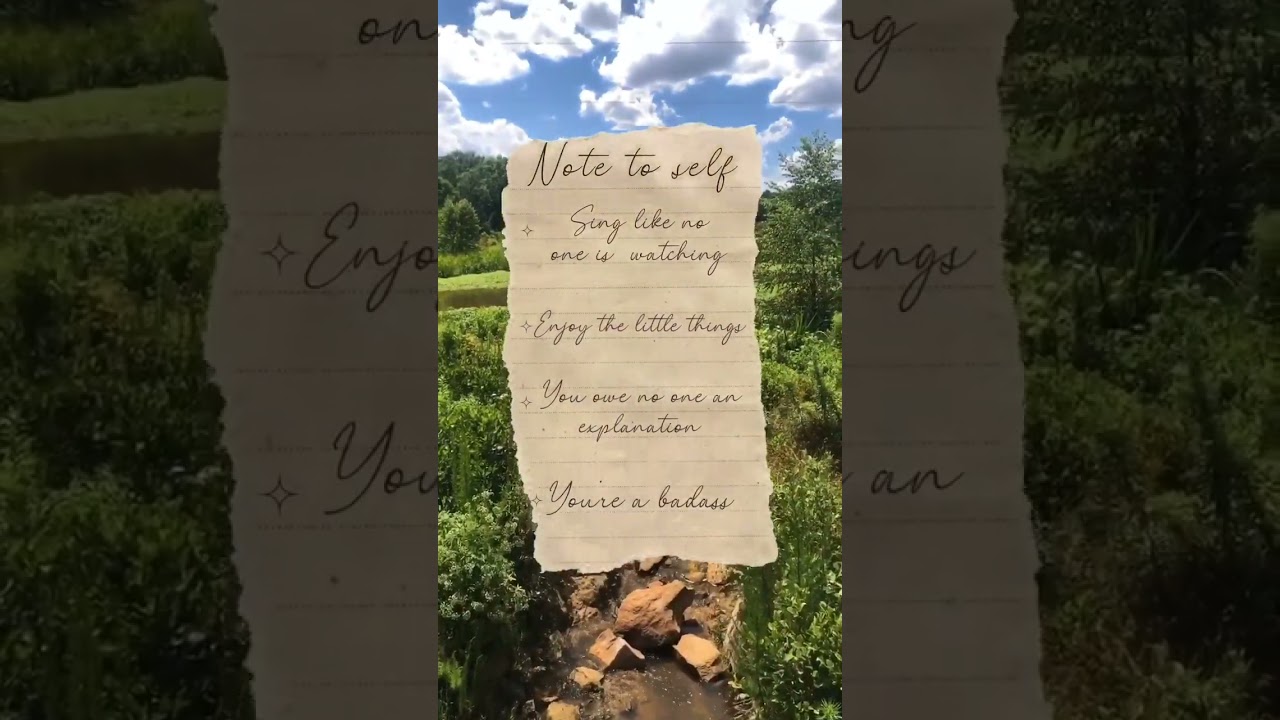 Note to self
Sing like no
one is watching
Enjoy the little things
You owe no one an
explanation
Youre a badass